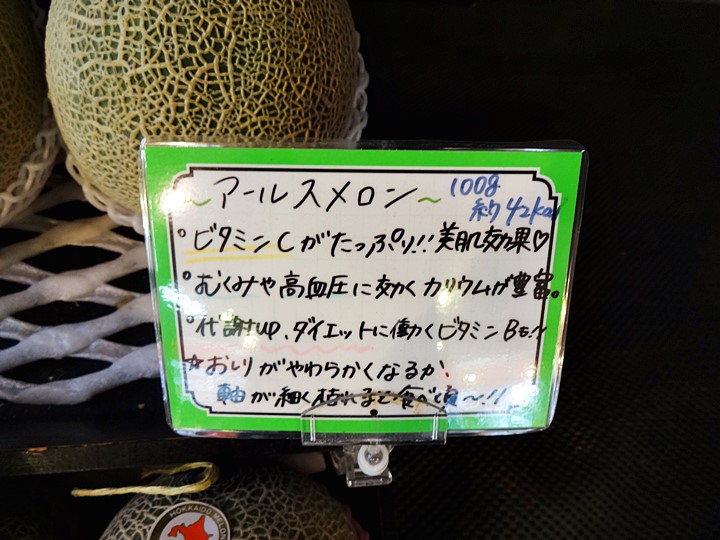 ~アールスメロン~
100g
約42kcal
°ビタミンCがたっぷり!!美肌効果♡
°むくみや高血圧に効くカリウムが豊富。
°代謝UP、ダイエットに働くビタミンBも!!
☆おしりがやわらかくなるか、
軸が細く枯れると食べ頃〜!!
HOKKAIDO MELON